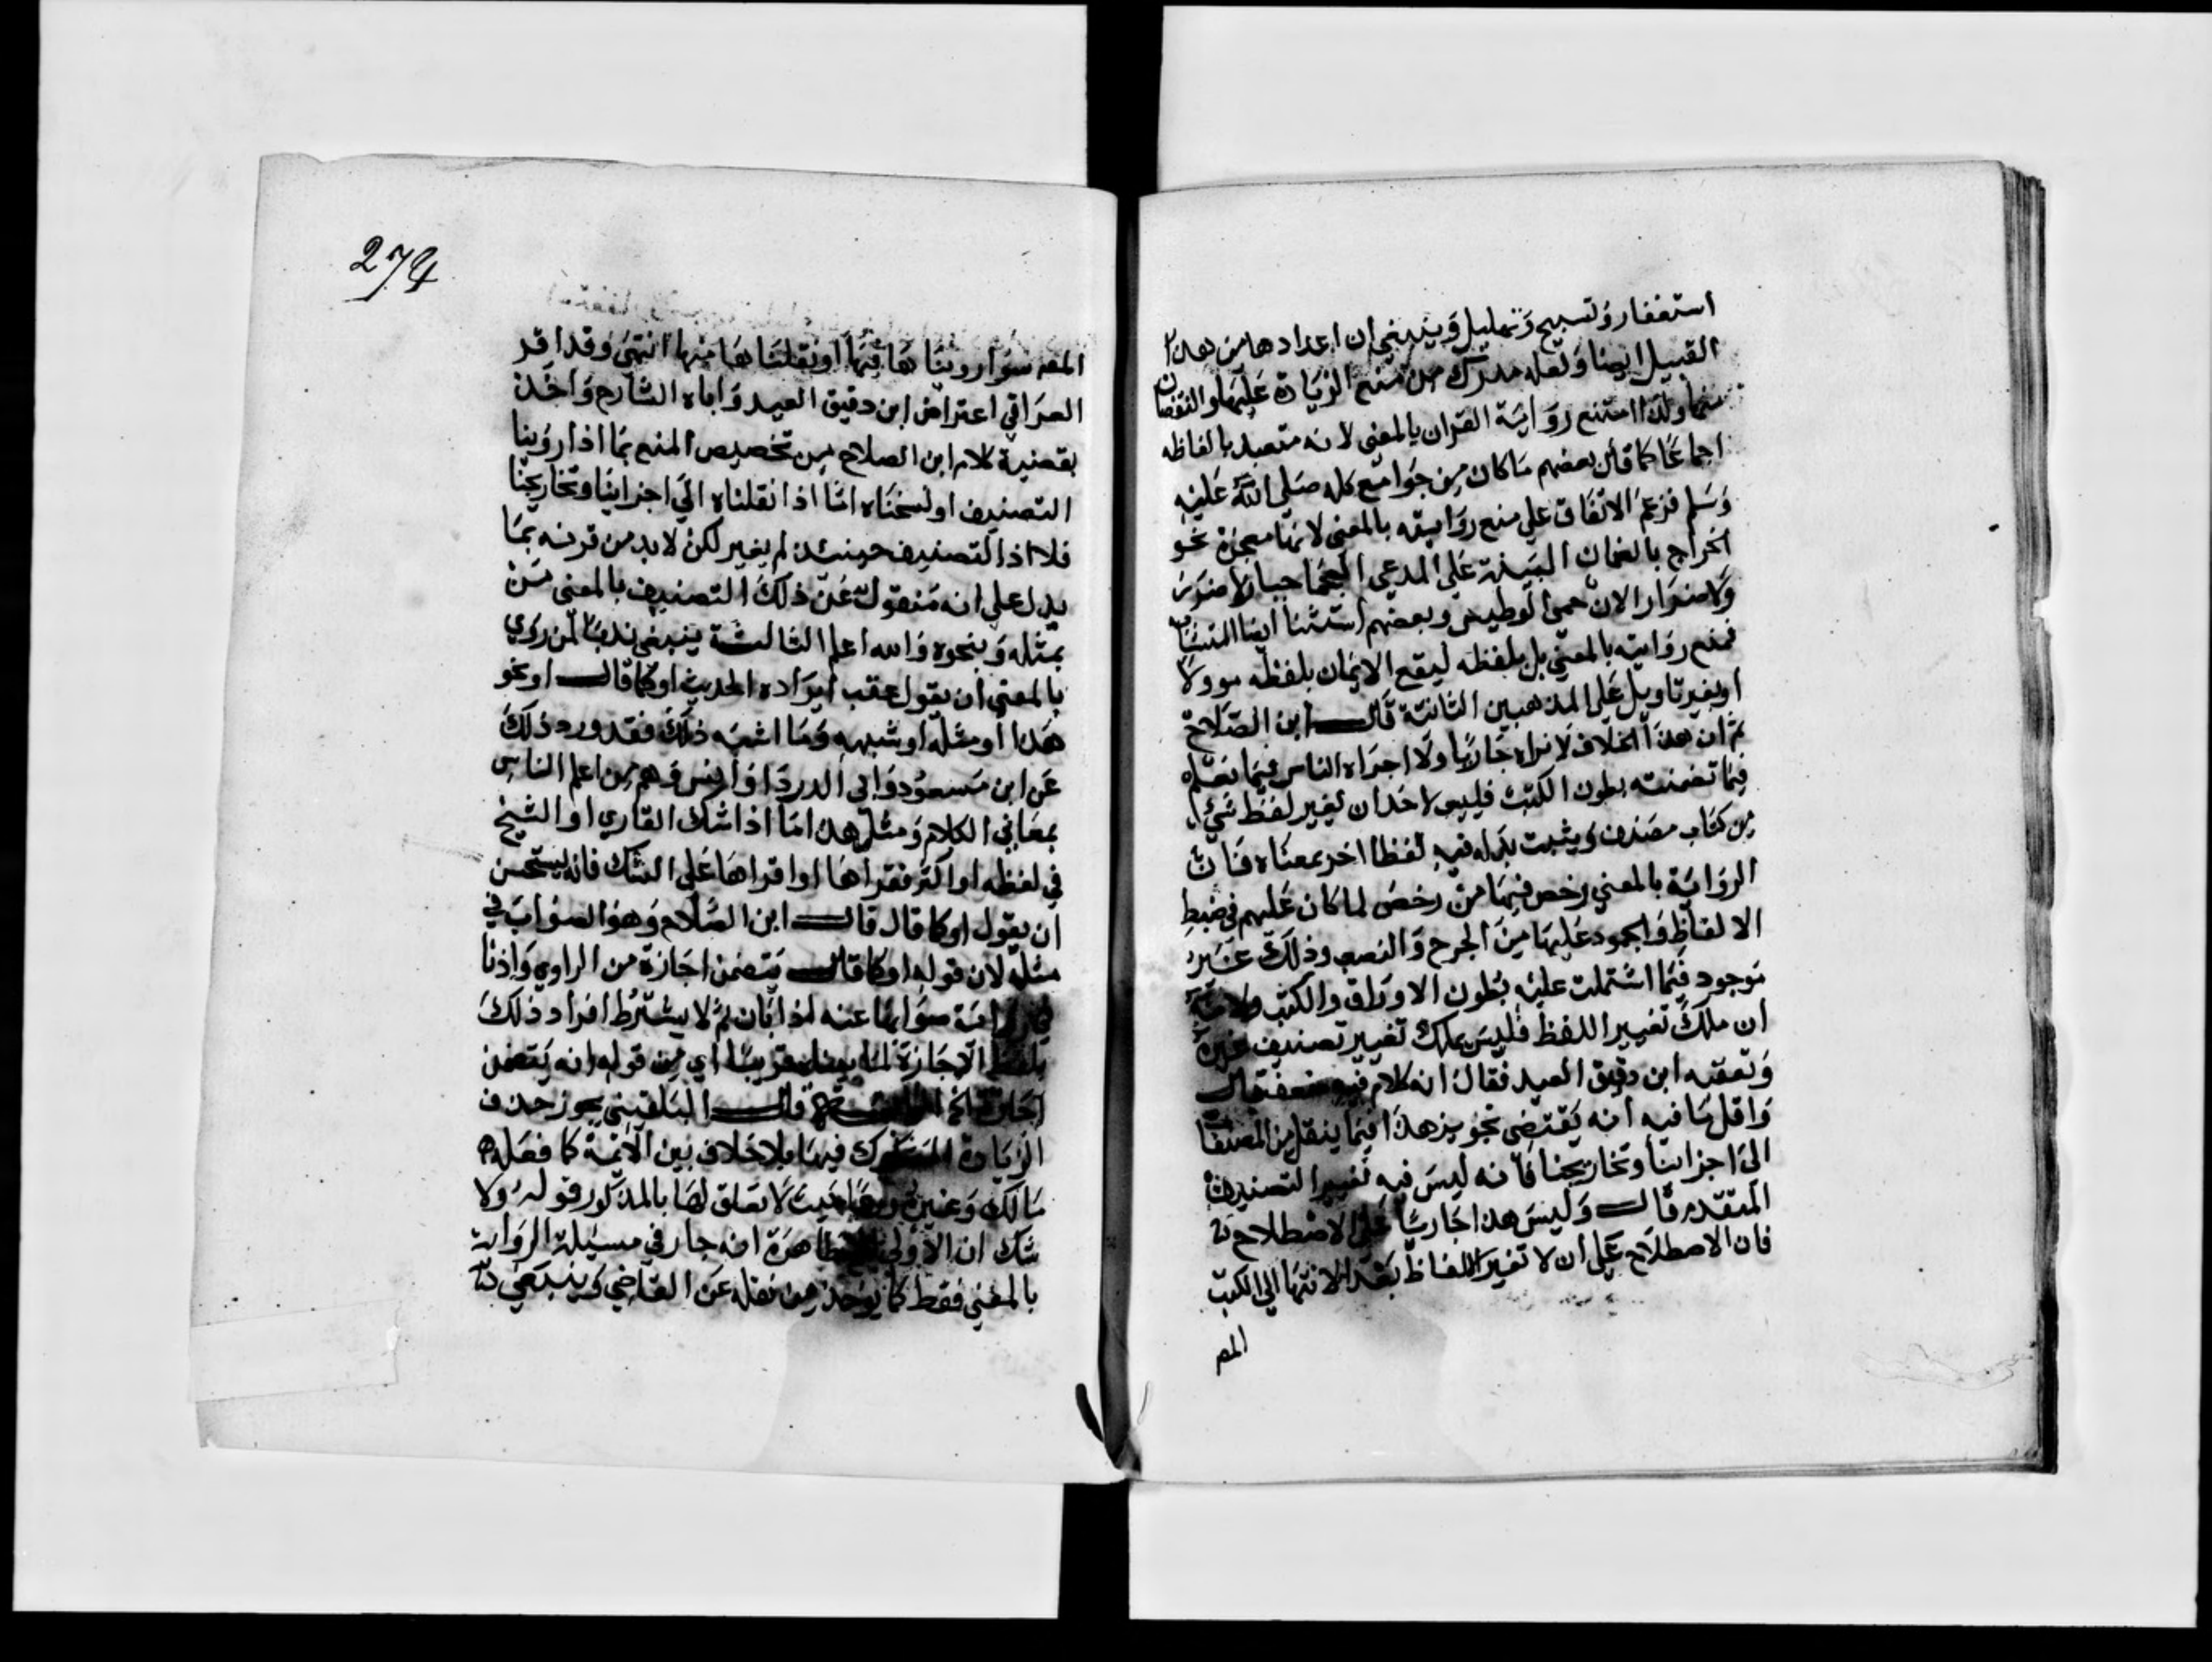 استغفار وتسبيح وتهليل وينبغي ان اعدادها من هذا
القبيل ايضا ولعله مدرك من منع الزيادة عليها والنقصان
منها ولذا امتنع رواية القران بالمعنى لانه متعبد بالفاظه
اجماعا كما قال بعضهم ما كان من جوامع كلمه صلى الله عليه
وسلم فزعم الاتفاق على منع روايته بالمعنى لانها معجزة نحو
الخراج بالضمان البينة على المدعي العجما جبار لا ضرر
ولا ضرار الان حمي الوطيس وبعضهم استثنا ايضا المتشابه
فمنع روايته بالمعنى بل بلفظه ليقع الايمان بلفظه موولا
او بغير تاويل على المذهبين الثانية قال ابن الصلاح
ثم ان هذا الخلاف لا نراه جاريا ولا اجراه الناس فيما نعلم
فيما تضمنته بطون الكتب فليس لاحد ان يغير لفظ شيء
من كتاب مصنف ويثبت بدله فيه لفظا اخر بمعناه فان
الرواية بالمعني رخص فيها من رخص لما كان عليهم في ضبط
الالفاظ والجمود عليها من الجرح والنصب وذلك غير
موجود فيما اشتملت عليه بطون الاوراق والكتب ولانه
ان ملك تغيير اللفظ فليس يملك تغيير تصنيف غيره
وتعقبه ابن دقيق العيد فقال انه كلام فيه ضعف قال
واقل ما فيه انه يقتضي تجويز هذا فيما ينقل من المصنفات
الى اجزائنا وتخاريجنا فانه ليس فيه تغيير التصنيف
المتقدم قال وليس هذا جاريا على الاصطلاح
فان الاصطلاح على ان لا تغير الالفاظ بعد الانتها الى الكتب
المص
274
المصنفه سوا رويناها فيها او نقلناها منها انتهى وقد اقر
العراقي اعتراض ابن دقيق العيد واباه الشارح واخذ
بقضية كلام ابن الصلاح من تخصيص المنع بما اذا روينا
التصنيف او نسخناه اما اذا نقلناه الي اجزاينا وتخاريجنا
فلا اذ التصنيف حينئذ لم يغير لكن لا بد من قرنه بما
يدل على انه منقول عن ذلك التصنيف بالمعنى من
بمثله وبنحوه والله اعلم الثالثة ينبغي ندبا لمن روي
بالمعنى ان يقول عقب ايراده الحديث او كما قال او نحو
هذا او مثله او شبهه وما اشبه ذلك فقد ورد ذلك
عن ابن مسعود وابي الدردا وانس وهم من اعلم الناس
بمعاني الكلام ومثل هذا ما اذا شك القاري او الشيخ
في لفظه او اكثر فقراها او اقراها على الشك فانه يستحسن
ان يقول او كما قال قال ابن الصلاح وهو الصواب في
مثله لان قوله او كما قال يتضمن اجازة من الراوي واذنا
في رواية صوابها عنه اذا بان ثم لا يشترط افراد ذلك
بلفظ الاجازة لما بيناه قريبا اي من قوله انه يتضمن
اجازة الخ الرابعة قال البلقيني يجوز حذف
الزيادة المشكوك فيها بلا خلاف بين الائمة كما فعله
مالك وغيره حيث لا تعلق لها بالمذكور قوله ولا
شك ان الاولي ظاهره انه جار في مسيلة الرواية
بالمعني فقط كما يوخذ من نقله عن القاضي وينبغي